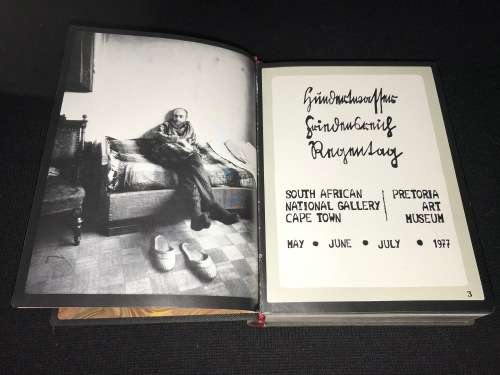 Hundertwasser
Friedensreich
Regentag
SOUTH AFRICAN
NATIONAL GALLERY
CAPE TOWN
PRETORIA
ART
MUSEUM
MAY • JUNE • JULY • 1977
3